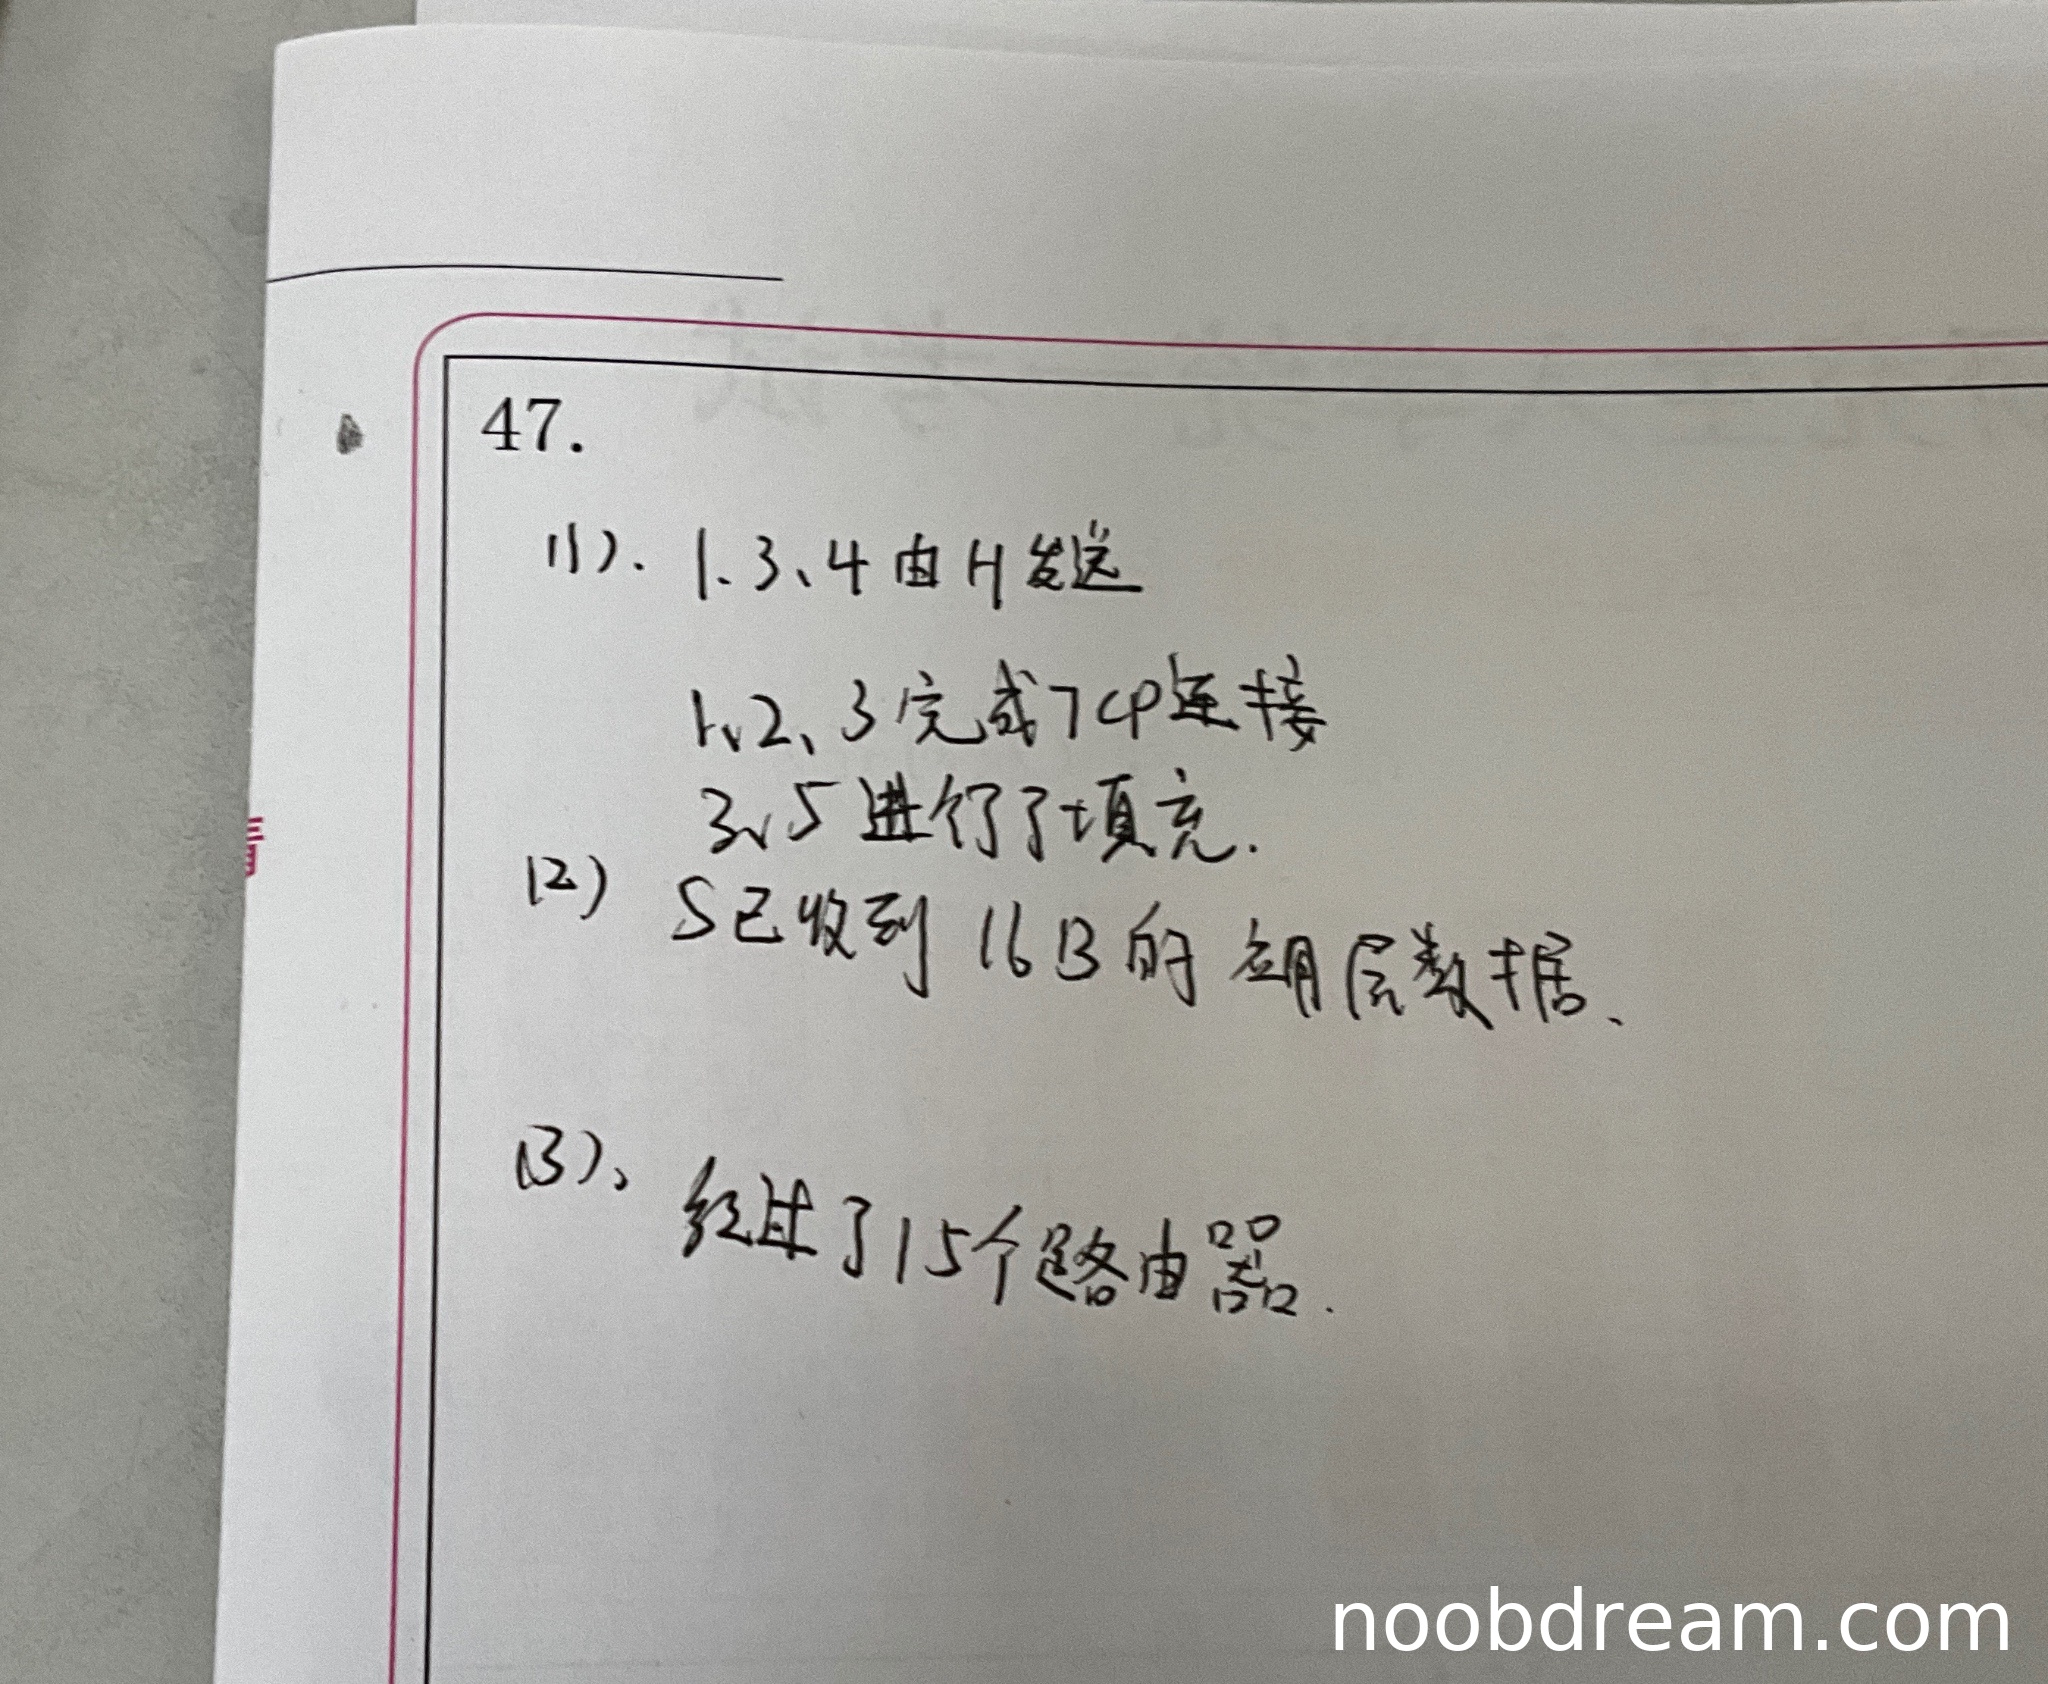 47.
(1). 1、3、4由H发送
1、2、3完成TCP连接
3、5进行了填充.
(2) S已收到 16B的 应用层数据、
(3)、经过了15个路由器.
noobdream.com